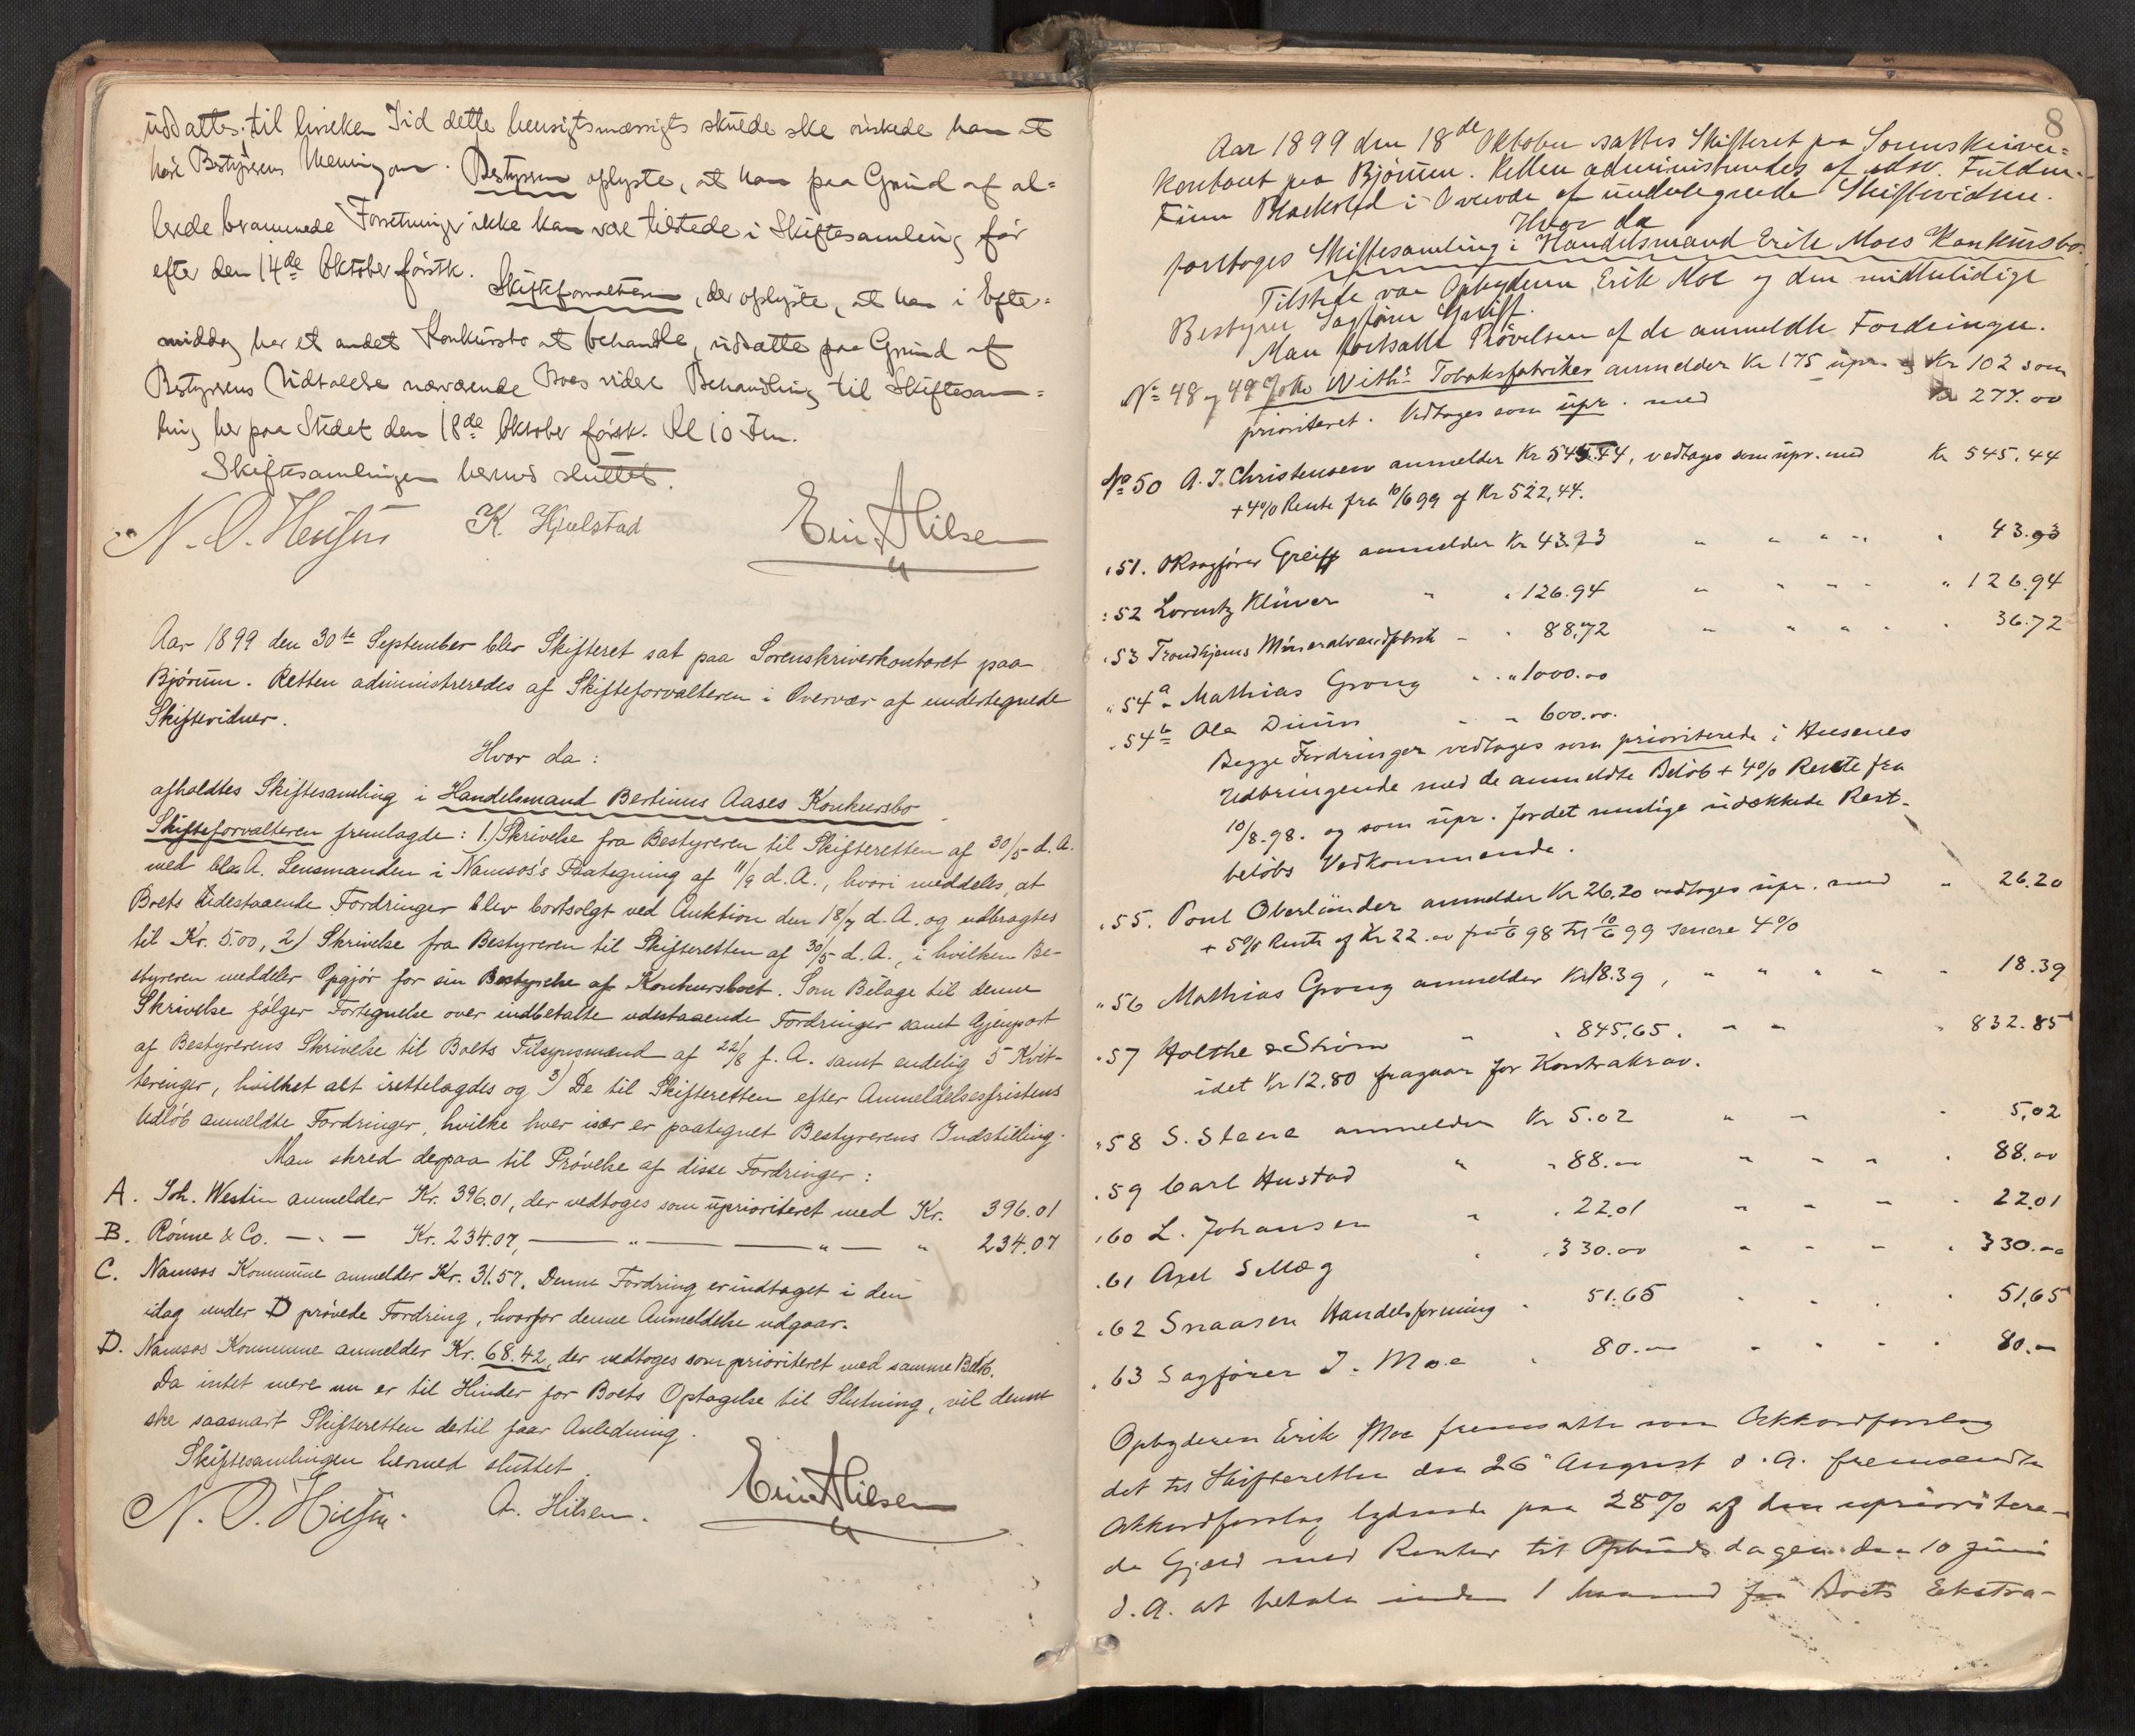 udsattes, til hvilken Tid dette hensigtsmæssigts skulde ske ønskede han at
høre Bestyrerens Mening om. Bestyreren oplyste, at han paa Grund af al=
lerede berammede Forretninger ikke kan være tilstede i Skiftesamling før
efter den 14de Oktober førstk. Skifteforvalteren, der oplyste, at han i Efter=
middag har et andet Konkursbo at behandle, udsatte paa Grund af
Bestyrerens Udtalelse nærværende Boes videre Behandling til Skiftesam=
ling her paa Stedet den 18de Oktober førstk. Kl 10 Fm.
Skiftesamlingen hermed sluttet.
K. Hjulstad
Aar 1899 den 30te September blev Skifteret sat paa Sorenskriverkontoret paa
Bjørum. Retten administreredes af Skifteforvalteren i Overvær af undertegnede
Skiftevidner.
Hvor da:
afholdtes Skiftesamling i Handelsmand Bertinus Aases Konkursbo.
Skifteforvalteren fremlagde: 1.) Skrivelse fra Bestyreren til Skifteretten af 30/5 d. A.
med bl. a. Lensmanden i Namsos's Paategning af 11/9 d. A., hvori meddeles, at
Boets Udestaaende Fordringer blev bortsolgt ved Auktion den 18/7 d. A. og udbragtes
til Kr. 5.00, 2) Skrivelse fra Bestyreren til Skifteretten af 30/5 d. A., i hvilken Be-
styreren meddeler Opgjør for sin Bestyrelse af Konkursboet. Som Bilage til denne
Skrivelse følger Fortegnelse over indbetalte udestaaende Fordringer samt Gjenpart
af Bestyrerens Skrivelse til Boets Tilsynsmænd af 22/8 f. A. samt endelig 5 Kvit-
teringer, hvilket alt irettelagdes og 3) De til Skifteretten efter Anmeldelsesfristens
Udløb anmeldte Fordringer, hvilke hver især er paategnet Bestyrerens Indstilling.
Man skred derpaa til Prøvelse af disse Fordringer:
A. Joh. Westin anmelder Kr. 396.01, der vedtoges som uprioriteret med Kr. 396.01
B. Rønne & Co. — " — Kr. 234.07, — " — — " — " 234.07
C. Namsos Kommune anmelder Kr. 31.57. Denne Fordring er indtaget i den
idag under D prøvede Fordring, hvorfor denne Anmeldelse udgaar.
D. Namsos Kommune anmelder Kr. 68.42, der vedtoges som prioriteret med samme Beløb.
Da intet mere nu er til Hinder for Boets Optagelse til Slutning, vil denne
ske saasnart Skifteretten dertil faar Anledning.
Skiftesamlingen hermed sluttet.
A. Hilsen.
8
Aar 1899 den 18de Oktober sattes Skifteret paa Sorenskriver=
kontoret paa Bjørum. Retten administreredes af edsv. Fuldm.
Finn Blackstad i Overvær af undertegnede Skiftevidner.
Hvor da
foretoges Skiftesamling i Handelsmand Erik Moes Konkursbo.
Tilstede var Opbyderen Erik Moe og den midlertidige
Bestyrer Sagfører Greiff.
Man fortsatte Prøvelsen af de anmeldte Fordringer.
No 48 og 49 Withs Tobaksfabriker anmelder Kr 175 upr. og Kr 102 som
prioriteret. Vedtoges som upr. med Kr 277.00
No 50 A. J. Christensen anmelder Kr 545.44, vedtoges som upr. med Kr 545.44
+ 4% Rente fra 10/6 99 af Kr 522,44.
" 51. ORsagfører Greiff anmelder Kr 43.93 " " " " " 43.93
" 52 Lorentz Klüwer " " 126.94 " " " " " 126.94
" 53 Trondhjems Mineralvandfabrik " " 88,72 " " " " " 36.72
" 54a Mathias Grong " " 1000.00
" 54b Ola Duun " " 600.00.
Begge Fordringer vedtoges som prioriterede i Husenes
Udbringende med de anmeldte Beløb + 4% Rente fra
10/8. 98. og som upr. for det mulige udækkede Rest-
beløbs Vedkommende.
" 55. Poul Oberländer anmelder Kr 26,20 vedtoges upr. med " 26.20
+ 5% Rente af Kr 22.00 fra 1/6 98 til 10/6 99 senere 4%
" 56 Mathias Grong anmelder Kr 18.39, " " " " " 18.39
" 57 Holthe & Strøm " " 845,65. " " " 832.85
idet Kr 12.80 fragaar for Kontrakrav.
" 58 S. Stene anmelder Kr 5.02 " " " 5,02
" 59 Carl Hustad " " 88.00 " " " " 88.00
" 60 L. Johansen " " 22.01 " " " " 22.01
" 61 Axel Sellæg " " 330.00 " " " " 330.00
" 62 Snaasen Handelsforening " 51.65 " " " " 51,65
" 63 Sagfører I. Moe " 80.— " " " " 80.—
Opbyderen Erik Moe fremsatte som Akkordforslag
det til Skifteretten den 26 August d. A. fremsendte
Akkordforslag lydende paa 25% af den upriotere-
de Gjæld med Renter til Opbudsdagen den 10 Juni
d. A. at betale inden 1 Maaned fra Boets Ekstra-